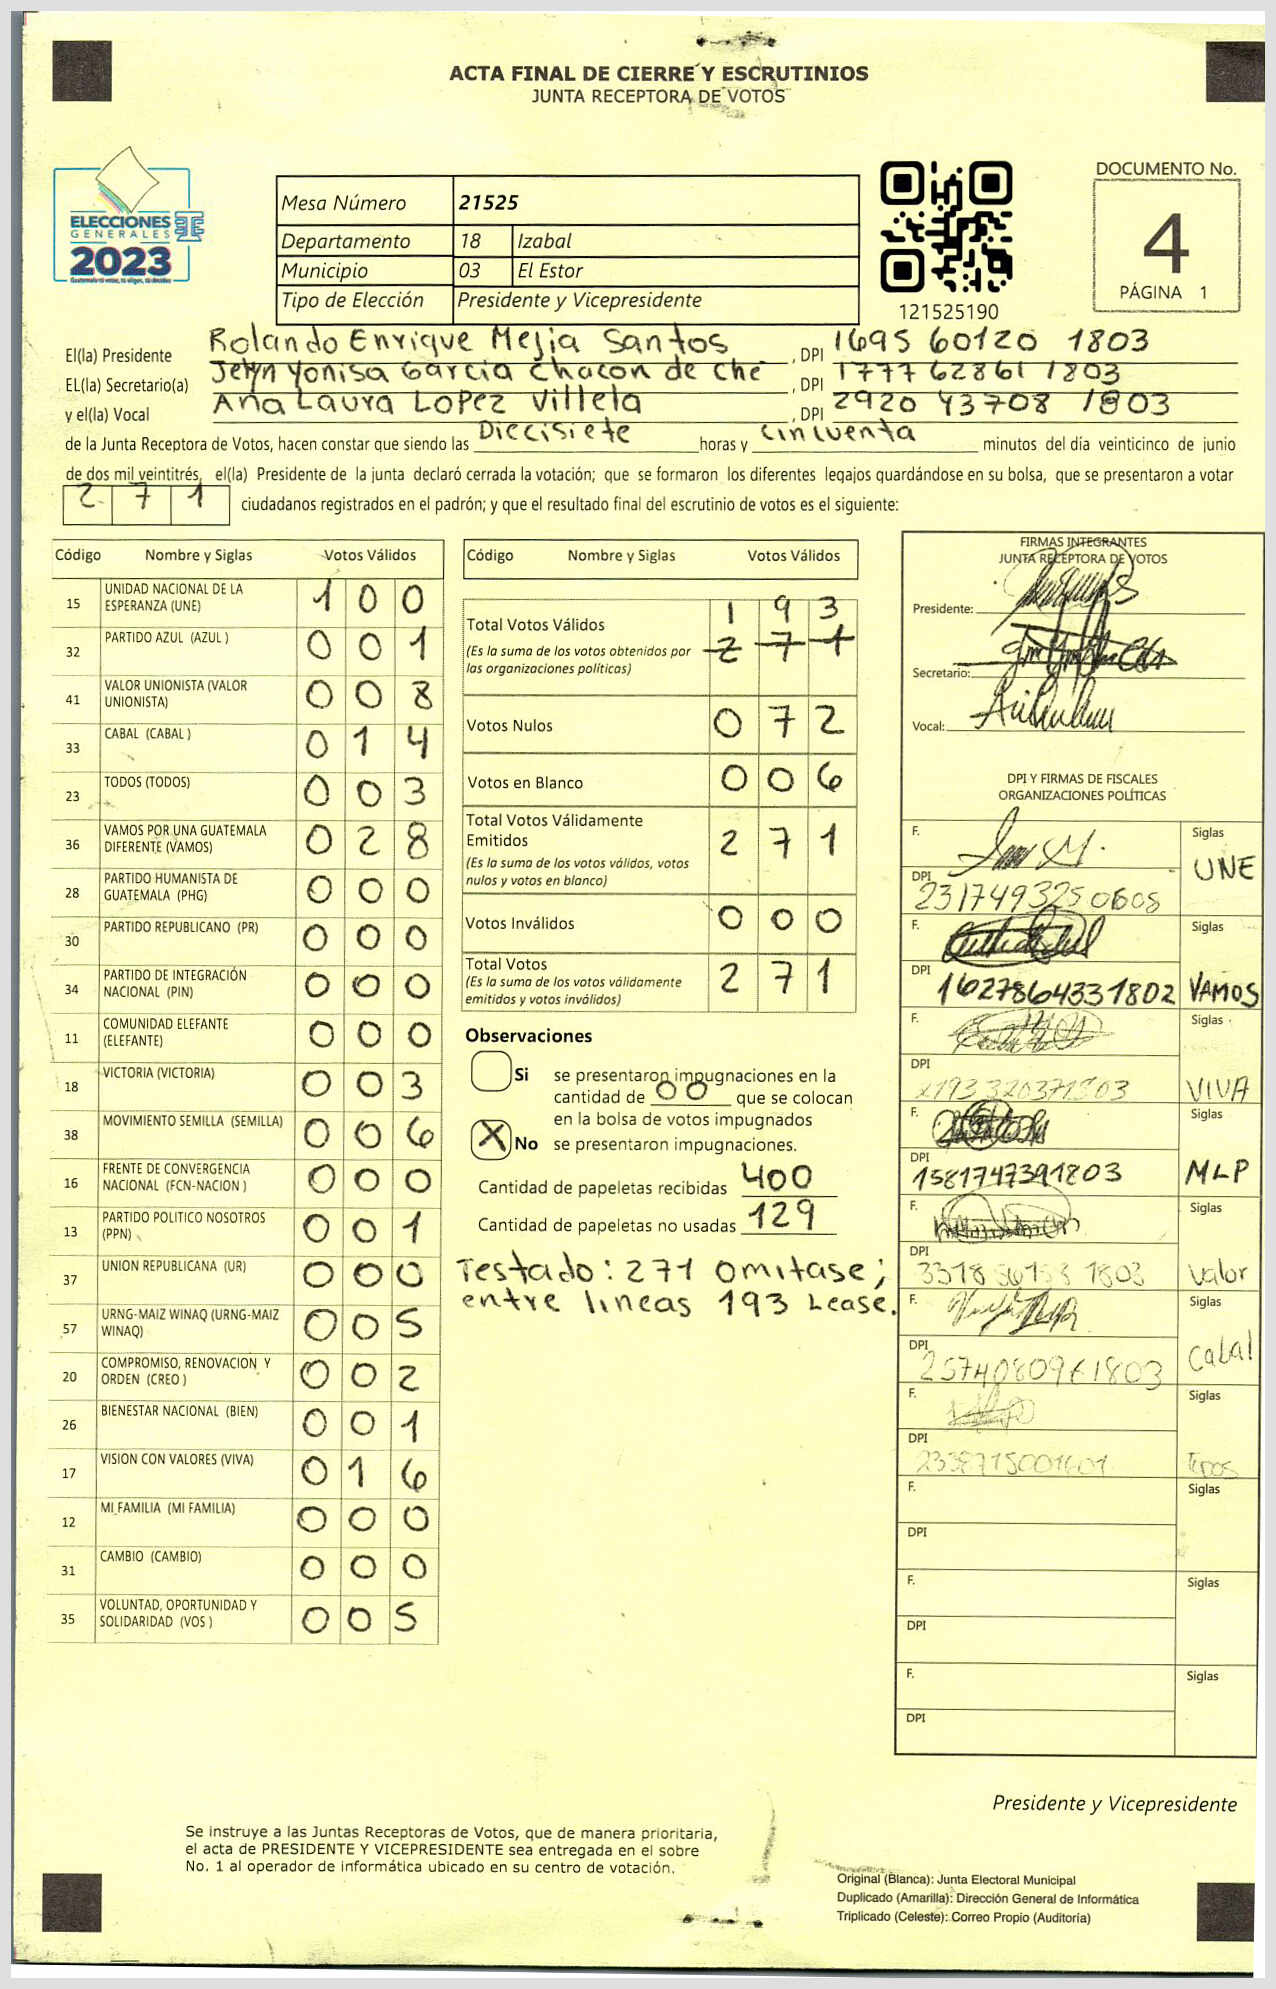 ACTA FINAL DE CIERRE Y ESCRUTINIOS
JUNTA RECEPTORA DE VOTOS
ELECCIONES
GENERALES
2023
Mesa Número 21525
Departamento 18 Izabal
Municipio 03 El Estor
Tipo de Elección Presidente y Vicepresidente
121525190
DOCUMENTO No.
4
PÁGINA 1
El(la) Presidente Rolando Enrique Mejia Santos, DPI 1695 60120 1803
EL(la) Secretario(a) Jelyn Yonisa Garcia Chacon de Che, DPI 1777 62861 1803
y el(la) Vocal Ana Laura Lopez Villela, DPI 2920 43708 1803
de la Junta Receptora de Votos, hacen constar que siendo las Diecisiete horas y cincuenta minutos del día veinticinco de junio
de dos mil veintitrés, el(la) Presidente de la junta declaró cerrada la votación; que se formaron los diferentes legajos guardándose en su bolsa, que se presentaron a votar
2 7 1 ciudadanos registrados en el padrón; y que el resultado final del escrutinio de votos es el siguiente:
Código Nombre y Siglas Votos Válidos
15 UNIDAD NACIONAL DE LA ESPERANZA (UNE) 1 0 0
32 PARTIDO AZUL (AZUL ) 0 0 1
41 VALOR UNIONISTA (VALOR UNIONISTA) 0 0 8
33 CABAL (CABAL ) 0 1 4
23 TODOS (TODOS) 0 0 3
36 VAMOS POR UNA GUATEMALA DIFERENTE (VAMOS) 0 2 8
28 PARTIDO HUMANISTA DE GUATEMALA (PHG) 0 0 0
30 PARTIDO REPUBLICANO (PR) 0 0 0
34 PARTIDO DE INTEGRACIÓN NACIONAL (PIN) 0 0 0
11 COMUNIDAD ELEFANTE (ELEFANTE) 0 0 0
18 VICTORIA (VICTORIA) 0 0 3
38 MOVIMIENTO SEMILLA (SEMILLA) 0 0 6
16 FRENTE DE CONVERGENCIA NACIONAL (FCN-NACION ) 0 0 0
13 PARTIDO POLITICO NOSOTROS (PPN) 0 0 1
37 UNION REPUBLICANA (UR) 0 0 0
57 URNG-MAIZ WINAQ (URNG-MAIZ WINAQ) 0 0 5
20 COMPROMISO, RENOVACION Y ORDEN (CREO ) 0 0 2
26 BIENESTAR NACIONAL (BIEN) 0 0 1
17 VISION CON VALORES (VIVA) 0 1 6
12 MI FAMILIA (MI FAMILIA) 0 0 0
31 CAMBIO (CAMBIO) 0 0 0
35 VOLUNTAD, OPORTUNIDAD Y SOLIDARIDAD (VOS ) 0 0 5
Código Nombre y Siglas Votos Válidos
1 9 3
Total Votos Válidos 2 7 1
(Es la suma de los votos obtenidos por
las organizaciones políticas)
Votos Nulos 0 7 2
Votos en Blanco 0 0 6
Total Votos Válidamente
Emitidos 2 7 1
(Es la suma de los votos válidos, votos
nulos y votos en blanco)
Votos Inválidos 0 0 0
Total Votos 2 7 1
(Es la suma de los votos válidamente
emitidos y votos inválidos)
Observaciones
Si se presentaron impugnaciones en la
cantidad de 00 que se colocan
en la bolsa de votos impugnados
X No se presentaron impugnaciones.
Cantidad de papeletas recibidas 400
Cantidad de papeletas no usadas 129
Testado: 271 omitase;
entre lineas 193 Lease.
FIRMAS INTEGRANTES
JUNTA RECEPTORA DE VOTOS
Presidente:
Secretario:
Vocal:
DPI Y FIRMAS DE FISCALES
ORGANIZACIONES POLÍTICAS
F. Siglas UNE
DPI 231749325 0608
F. Siglas VAMOS
DPI 1627864331802
F. Siglas VIVA
DPI
F. Siglas MLP
DPI 1581747391803
F. Siglas Valor
DPI
F. Siglas Cabal
DPI 2574080961803
F. Siglas Todos
DPI
F. Siglas
DPI
F. Siglas
DPI
F. Siglas
DPI
Presidente y Vicepresidente
Se instruye a las Juntas Receptoras de Votos, que de manera prioritaria,
el acta de PRESIDENTE Y VICEPRESIDENTE sea entregada en el sobre
No. 1 al operador de informática ubicado en su centro de votación.
Original (Blanca): Junta Electoral Municipal
Duplicado (Amarilla): Dirección General de Informática
Triplicado (Celeste): Correo Propio (Auditoría)